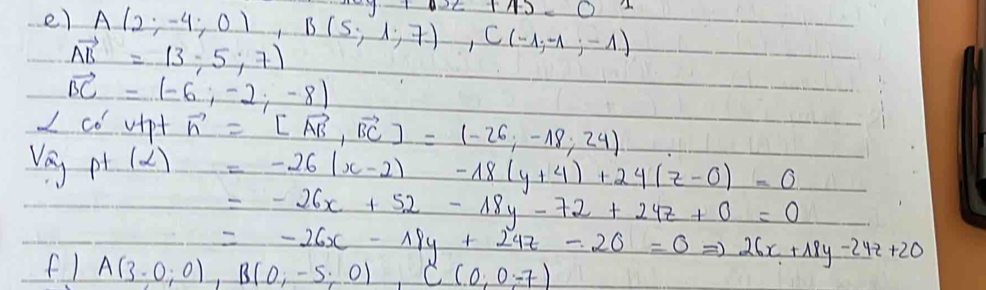 + 15 = 0
e) A(2; -4; 0), B(5; 1; 7), C(-1; -1; -1)
AB⃗ = (3; 5; 7)
BC⃗ = (-6; -2; -8)
α có vtpt n⃗ = [AB⃗, BC⃗] = (-26; -18; 24)
Vậy pt (α) = -26(x-2) -18(y+4) + 24(z-0) = 0
= -26x + 52 - 18y - 72 + 24z + 0 = 0
= -26x - 18y + 24z - 20 = 0 => 26x + 18y - 24z + 20
f) A(3; 0; 0), B(0; -5; 0), C(0; 0; -7)